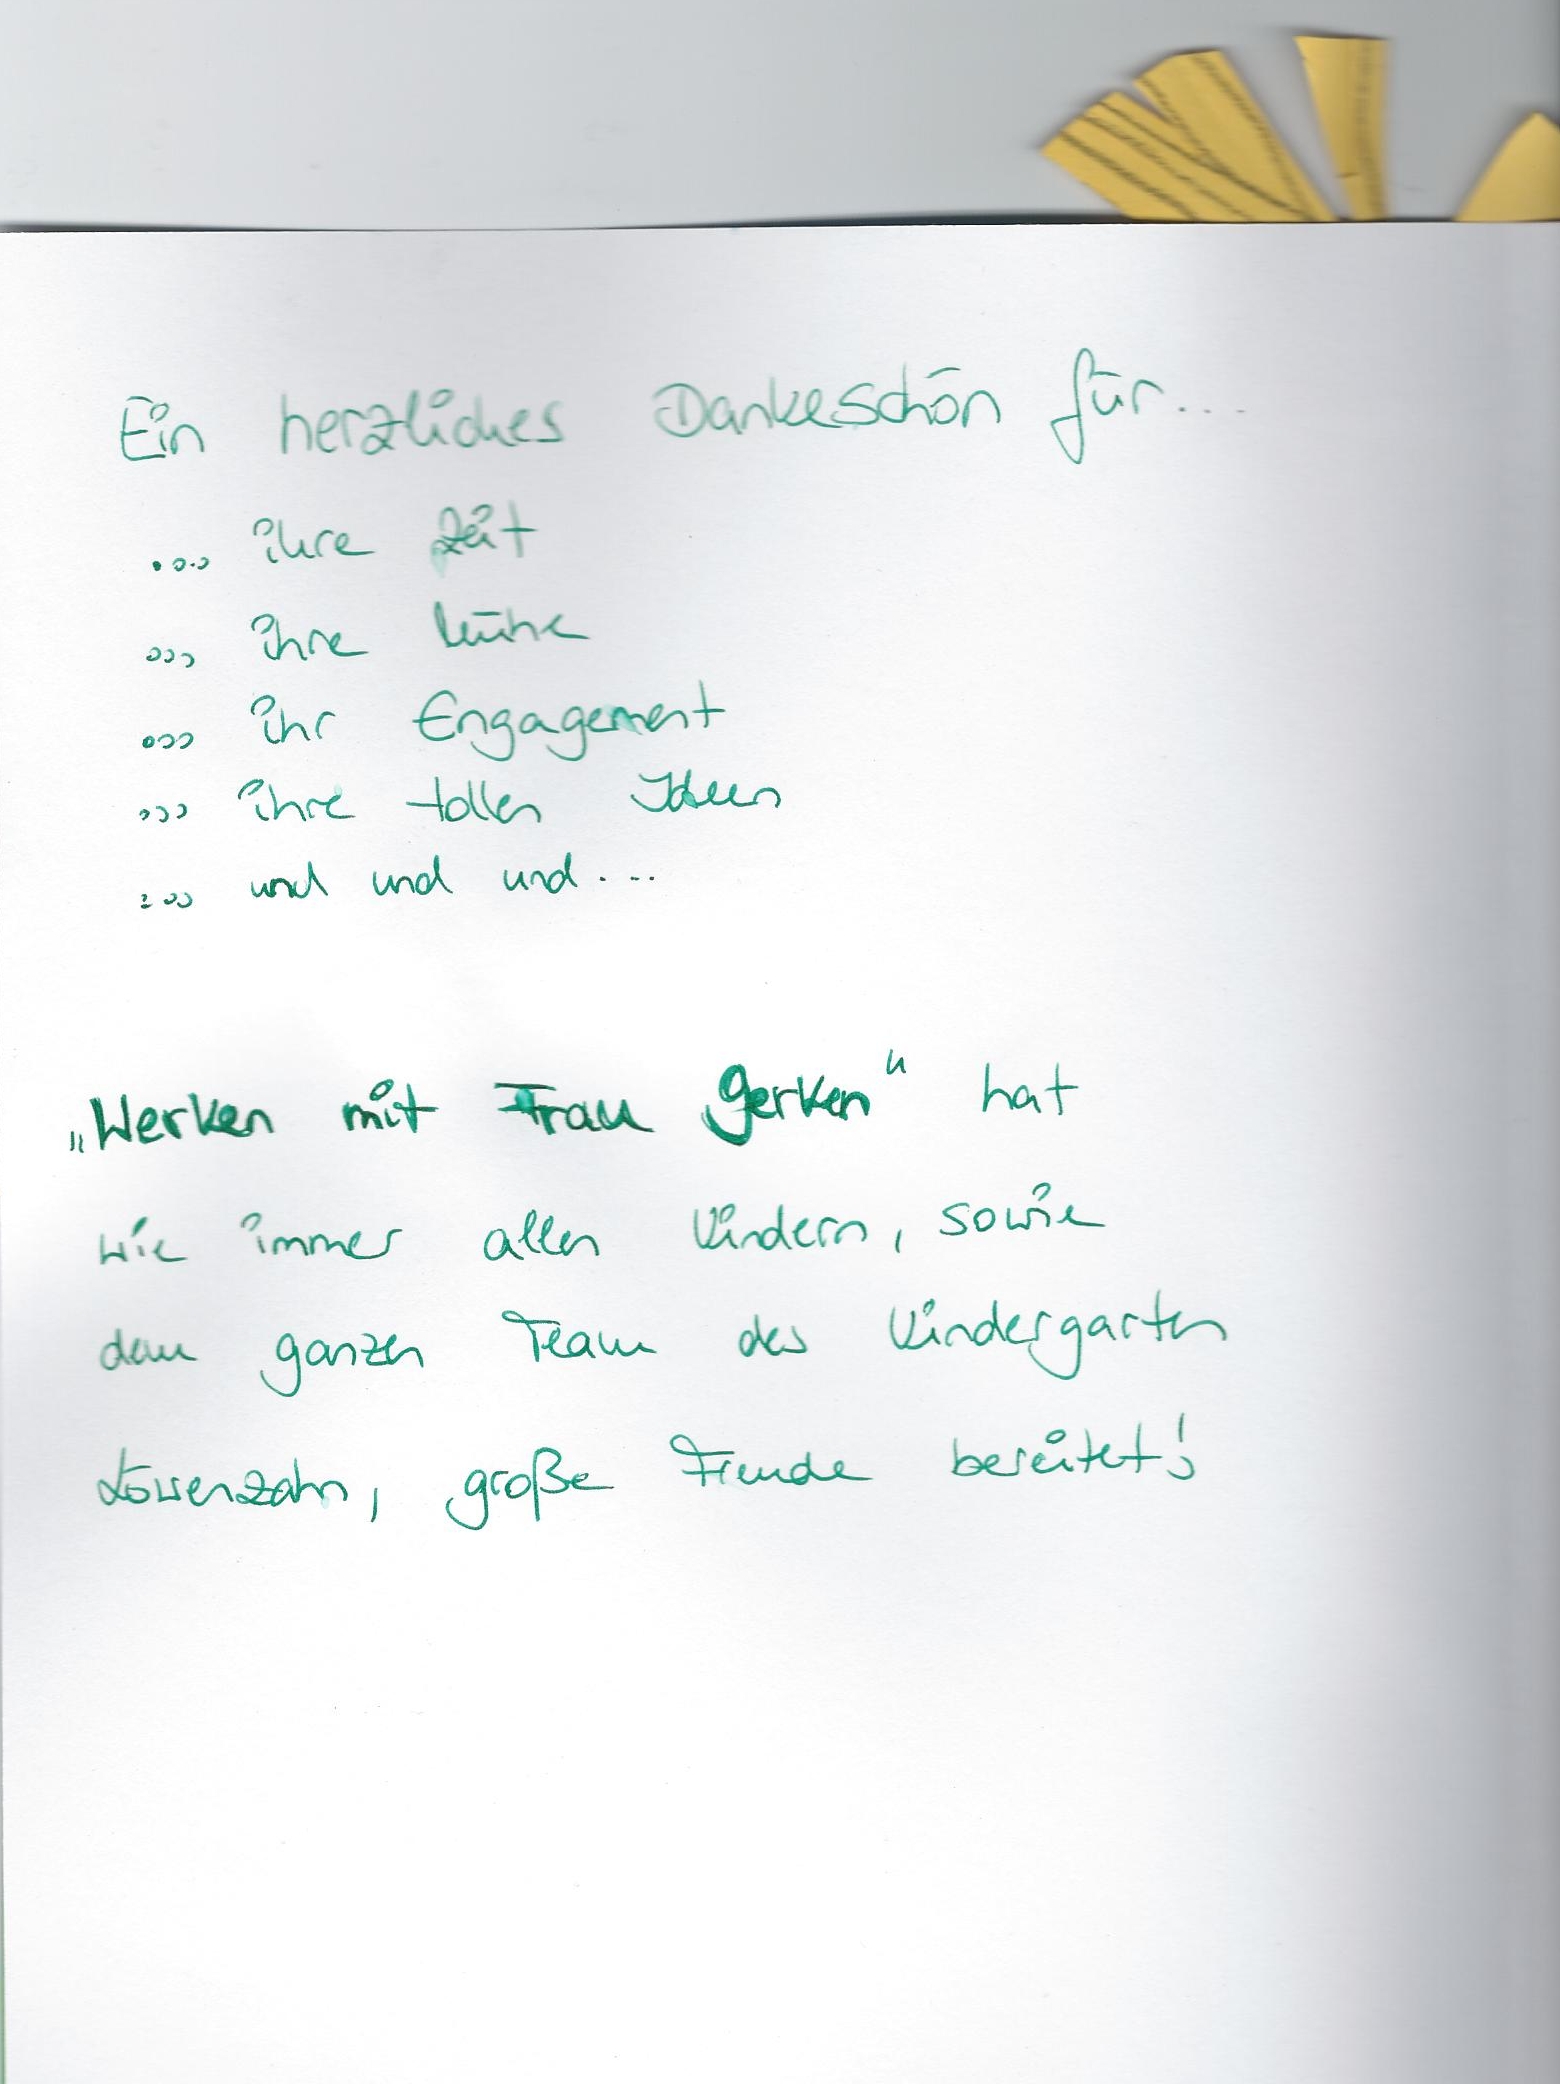 Ein herzliches Dankeschön für...
.... ihre Zeit
... ihre Mühe
.... ihr Engagement
... ihre tollen Ideen
... und und und...
„Werken mit Frau Gerken" hat
wie immer allen Kindern, sowie
dem ganzen Team des Kindergarten
Löwenzahn, große Freude bereitet!